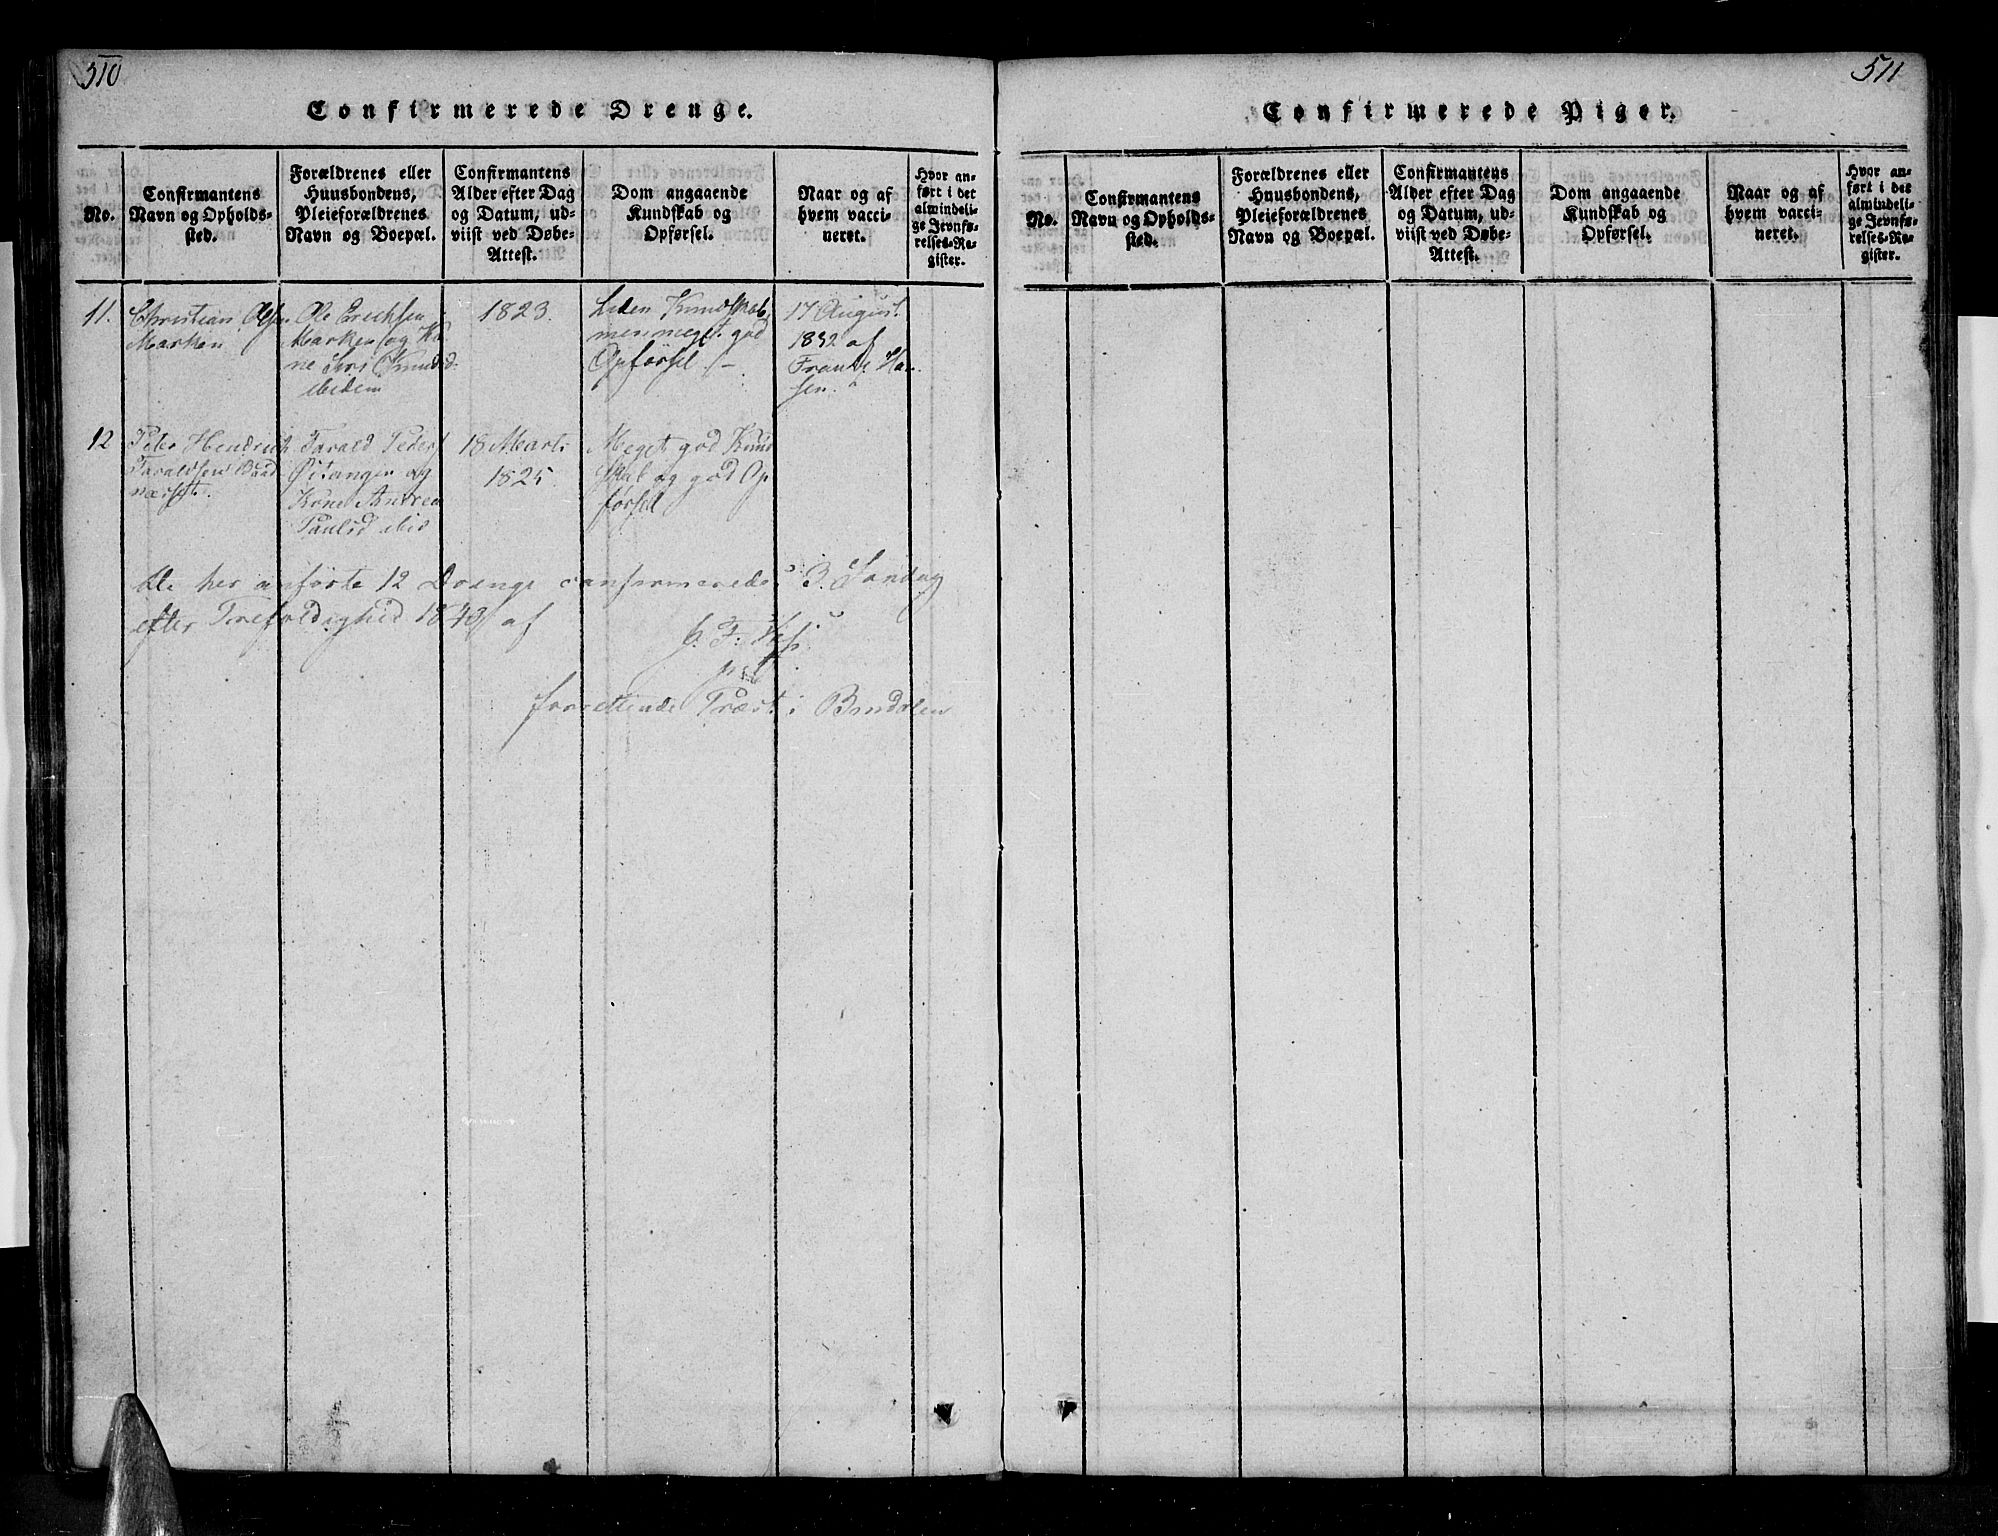 510
Confirmerede Drenge.
No.
Confirmantens
Navn og Opholds-
sted.
Forældrenes eller
Huusbondens,
Pleieforældrenes
Navn og Boepæl.
Confirmantens
Alder efter Dag
og Datum, ud-
viist ved Døbe-
Attest.
Dom angaaende
Kundskab og
Opførsel.
Naar og af
hvem vacci-
neret.
Hvor an-
ført i det
almindeli-
ge Jevnfø-
relses-Re-
gister.
11.
Christian Olsen
Marken
Ole Erichsen
Marken og Ko
ne Knudsd
ibidem
1823.
Liden Kundskab,
men meget god
Opførsel
17 August
1832 af
Frantz Han
sen.
12
Peter Hendrich
Taraldsen
Tarald Peders
og
Kone Andrea
Paulsd ibid
18 Marts
1825
Meget god Kund
skab og god Op
førsel
De her anførte 12 Drenge confirmerede 3. Søndag
efter Trefoldighed 1840 af
forrettende Præst i
511
Confirmerede Piger.
No.
Confirmantens
Navn og Opholds-
sted.
Forældrenes eller
Huusbondens,
Pleieforældrenes
Navn og Boepæl.
Confirmantens
Alder efter Dag
og Datum, ud-
viist ved Døbe-
Attest.
Dom angaaende
Kundskab og
Opførsel.
Naar og af
hvem vacci-
neret.
Hvor an-
ført i det
almindeli-
ge Jevnfø-
relses-Re-
gister.